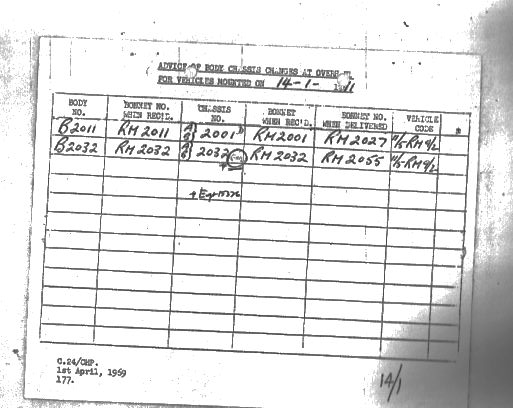 ADVICE OF BODY CHASSIS CHANGES AT
FOR VEHICLES MOUNTED ON 14-1-
BODY NO. BONNET NO. WHEN REC'D. CHASSIS NO. BONNET WHEN REC'D. BONNET NO. WHEN DELIVERED VEHICLE CODE
B2011 RM2011 2001 RM2001 RM2027 RM
B2032 RM2032 2032 RM2032 RM2055 RM
C.24/CHP.
1st April, 1969
177.
14/1